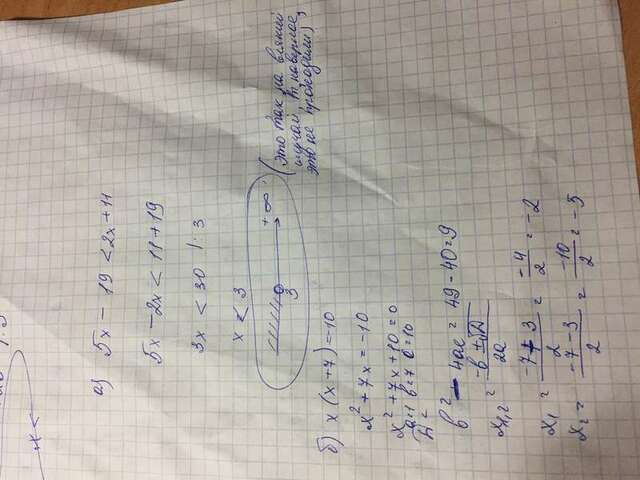 x <
а) 5x - 19 < 2x + 11
5x - 2x < 11 + 19
3x < 30 | : 3
x < 3
+ ∞
3
(это так на всякий
случай, т, наверное,
это не проходили)
б) x (x + 7) = -10
x² + 7x = -10
x² + 7x + 10 = 0
a=1 b=7 c=10
D =
b² - 4ac = 49 - 40 = 9
x₁,₂ = (-b ± √D) / 2a
x₁ = (-7 + 3) / 2 = -4 / 2 = -2
x₂ = (-7 - 3) / 2 = -10 / 2 = -5